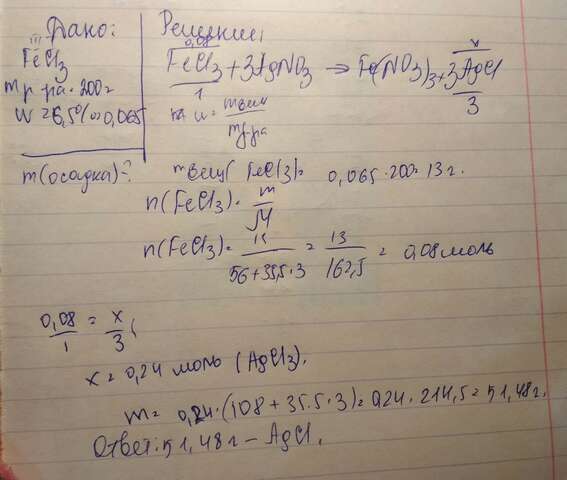 Дано:
III
FeCl3
m р-ра = 200 г
W = 6,5% = 0,065
m(осадка)-?
Решение:
0,08 x
FeCl3 + 3AgNO3 → Fe(NO3)3 + 3AgCl
1 3
w = m вещ / m р-ра
m вещ (FeCl3) = 0,065 · 200 = 13 г.
n(FeCl3) = m / M
n(FeCl3) = 13 / 56+35,5·3 = 13 / 162,5 = 0,08 моль
0,08 / 1 = x / 3
x = 0,24 моль (AgCl3).
m = 0,24 · (108 + 35.5 · 3) = 0,24 · 214,5 = 51,48 г.
Ответ: 51,48 г – AgCl.